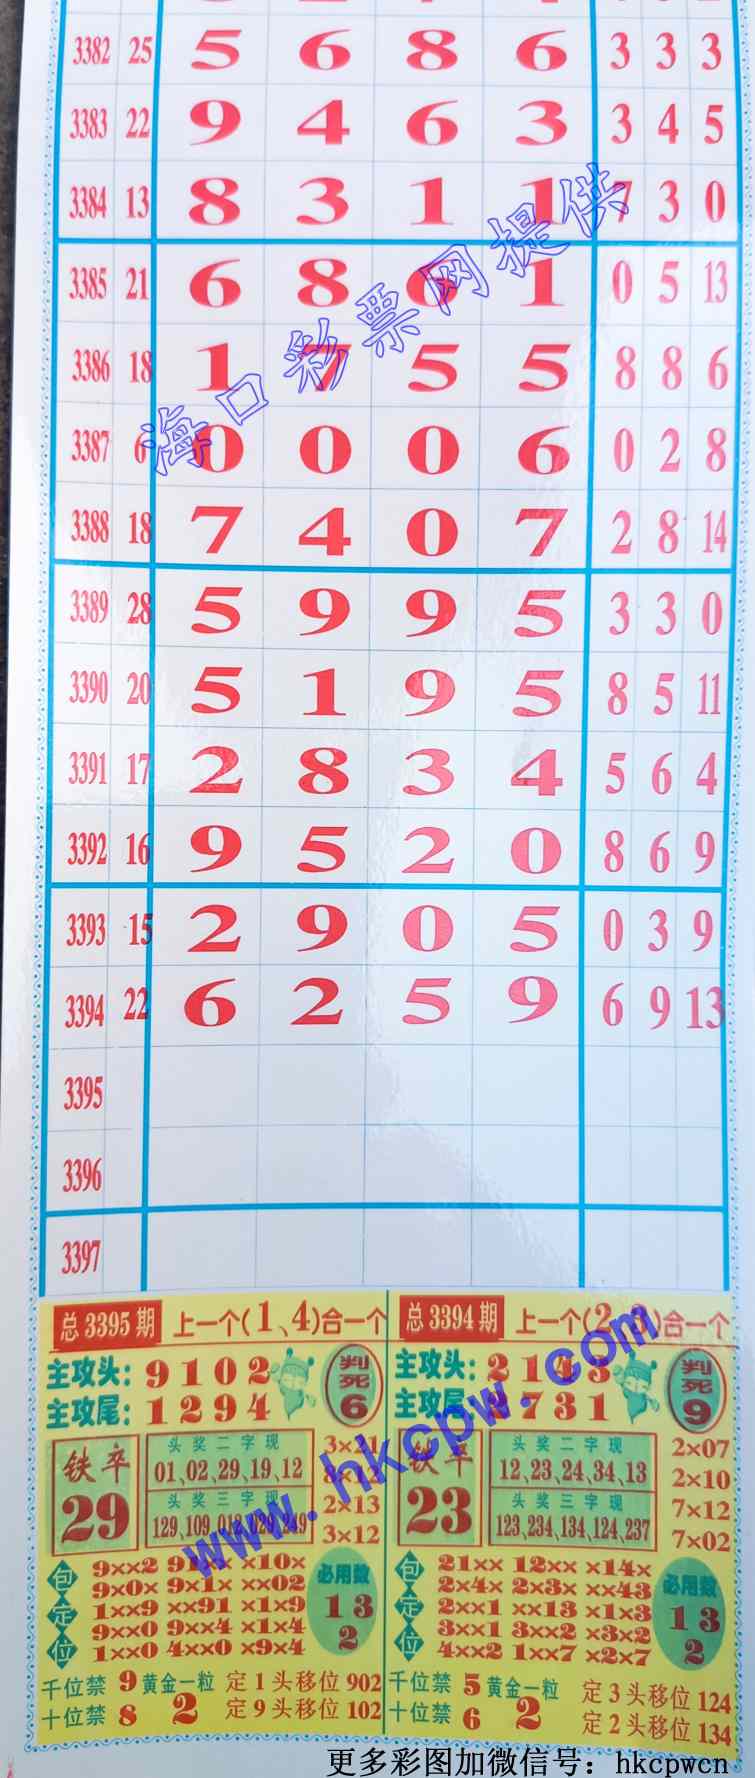 3382 25 5 6 8 6 3 3 3
3383 22 9 4 6 3 3 4 5
3384 13 8 3 1 1 7 3 0
3385 21 6 8 0 1 0 5 13
3386 18 1 7 5 5 8 8 6
3387 6 0 0 0 6 0 2 8
3388 18 7 4 0 7 2 8 14
3389 28 5 9 9 5 3 3 0
3390 20 5 1 9 5 8 5 11
3391 17 2 8 3 4 5 6 4
3392 16 9 5 2 0 8 6 9
3393 15 2 9 0 5 0 3 9
3394 22 6 2 5 9 6 9 13
3395
3396
3397
海口彩票网提供
总3395期 上一个(1、4)合一个
主攻头:9102
主攻尾:1294
判死6
铁卒
29
头奖二字现
01、02、29、19、12
头奖三字现
129、109、012、029、249
3×21
8×12
2×13
3×12
包定位
9××2 91×× ×10×
9×0× 9×1× ××02
1××9 ××91 1×9
9××0 9××4 ×1×4
1××0 4××0 ×9×4
必用数
1 3
2
千位禁 9
十位禁 8
黄金一粒
2
定1头移位902
定9头移位102
总3394期 上一个(2、3)合一个
主攻头:2143
主攻尾:731
判死9
铁卒
23
头奖二字现
12、23、24、34、13
头奖三字现
123、234、134、124、237
2×07
2×10
7×12
7×02
包定位
21×× 12×× ×14×
2×4× 2×3× ××43
2××1 ××13 ×1×3
3××1 3××2 ×3×2
4××2 1××7 ×2×7
必用数
1 3
2
千位禁 5
十位禁 6
黄金一粒
2
定3头移位124
定2头移位134
www.hkcpw.com
更多彩图加微信号：hkcpwcn